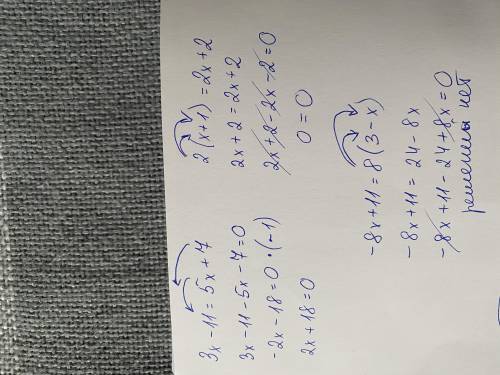 3x - 11 = 5x + 7
3x - 11 - 5x - 7 = 0
-2x - 18 = 0 · (-1)
2x + 18 = 0
2(x+1) = 2x + 2
2x + 2 = 2x + 2
2x + 2 - 2x - 2 = 0
0 = 0
-8x + 11 = 8(3 - x)
-8x + 11 = 24 - 8x
-8x + 11 - 24 + 8x = 0
решениы нет